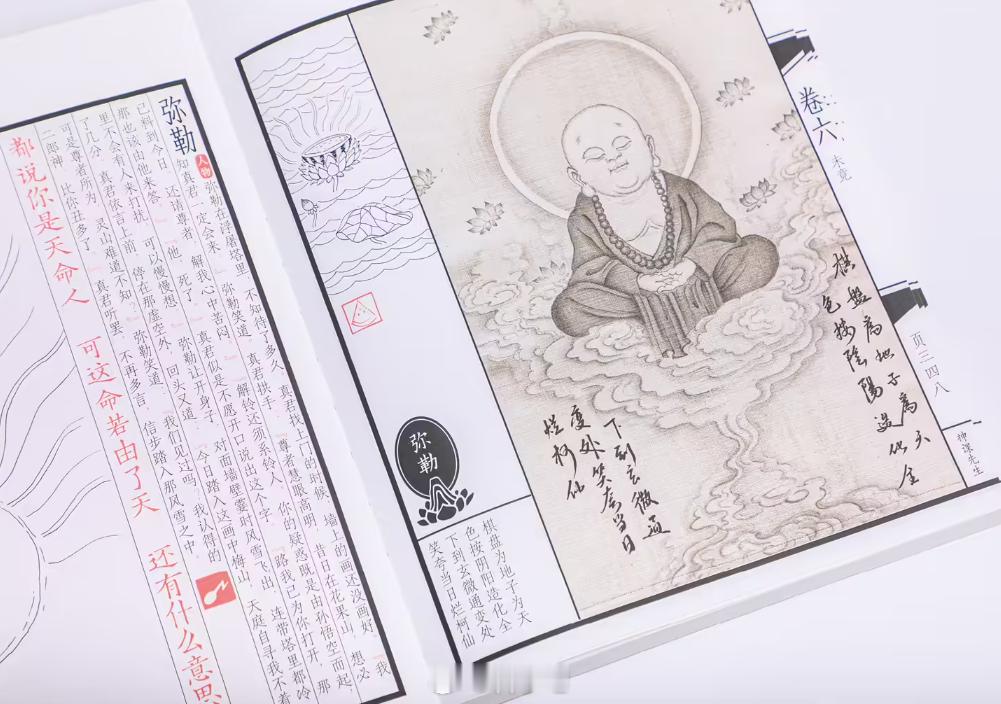 弥勒
人物
弥勒在浮屠塔里，不知待了多久，真君找上门的时候，墙上的画还没画好。『我
知真君一定会来，解我心中苦闷。』弥勒笑道。真君拱手，『尊者慧眼高明，昔日在花果山，想必
已料到今日，还请尊者。』『他，死了。』真君似是不愿开口说出这个字。『解铃还须系铃人，你的疑惑既是由孙悟空而起，
那也该由他来答。』弥勒让开身子，对面墙壁霎时风雪飞出，连带塔里都冷
里不会有人来打扰，可以慢慢想。』『路我已为你打开，那
了几分。真君依言上前，停在那虚空外，回头又道，『今日踏入这画中梅山，天庭自寻我不着
可是尊者所为，灵山难道不知？』弥勒笑道，『我们见过吗，我认得的
二郎神，比你丑多了。』真君听罢，不再多言，信步踏入那风雪之中。
都说你是天命人 可这命若由了天 还有什么意思
卷六
未竟
页三四八
钟馗先生
棋盘為地子為天
色按陰陽造化全
下到玄微通
变处笑夸当日
烂柯仙
弥勒
棋盘为地子为天
色按阴阳造化全
下到玄微通变处
笑夸当日烂柯仙